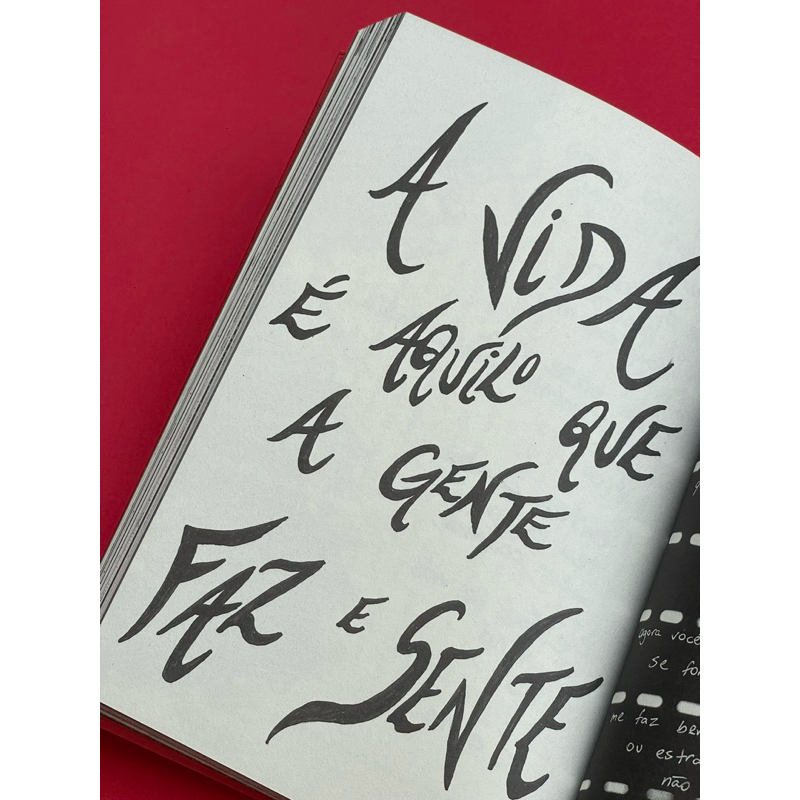 A VIDA
É AQUILO QUE
A GENTE
FAZ E SENTE
agora você
se
me faz
ou
não